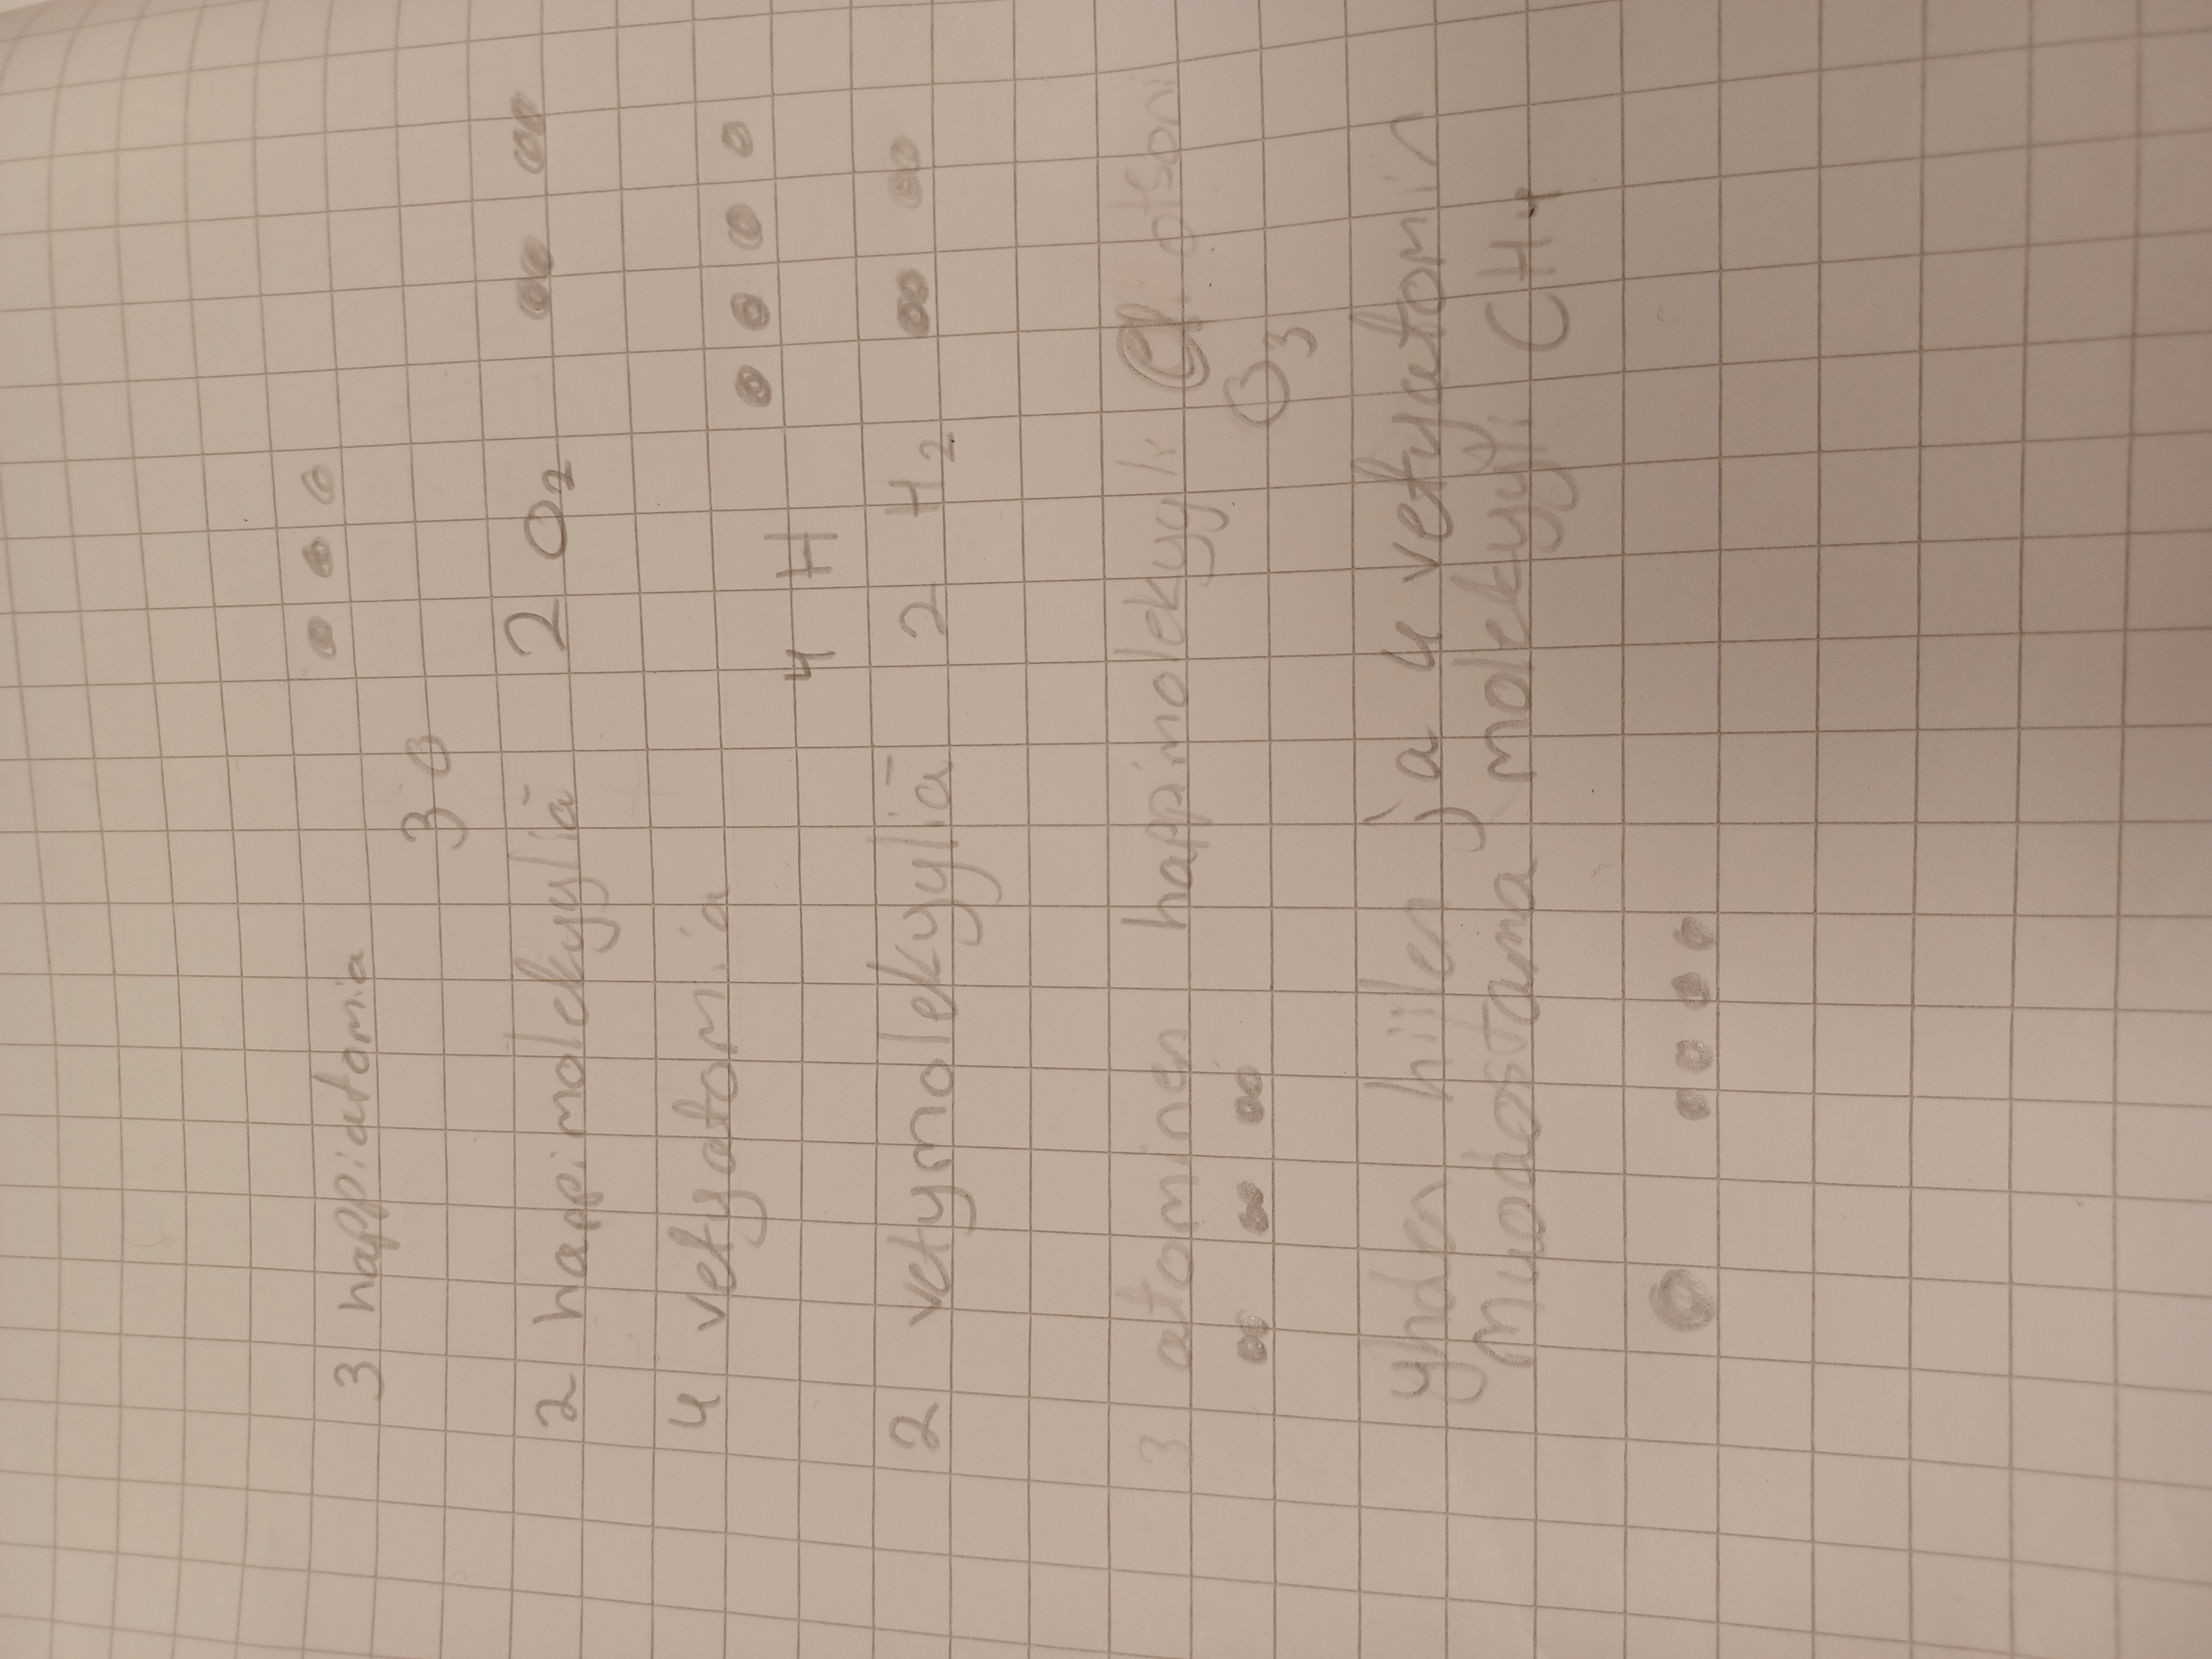 3 happiatomia
3 O
2 happimolekyyliä 2 O₂
4 vetyatomia
4 H
2 vetymolekyyliä 2 H₂
3 atominen happimolekyyli eli otsoni
O₃
yhden hiilen ja 4 vetyatomin
muodostama molekyyli CH₄